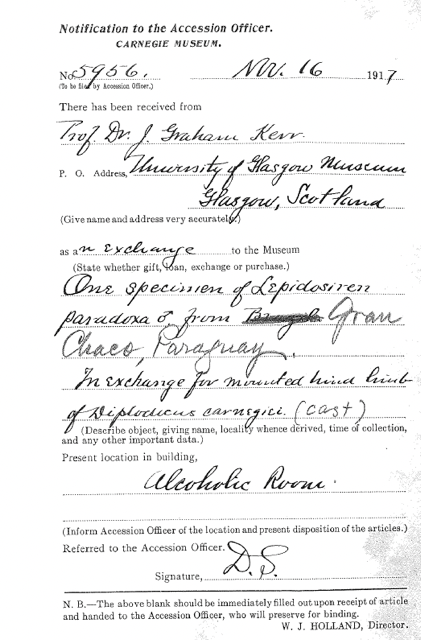 Notification to the Accession Officer.
CARNEGIE MUSEUM.
No. 5956. Nov. 16 1917
(To be filed by Accession Officer.)
There has been received from
Prof. Dr. J. Graham Kerr.
P. O. Address, University of Glasgow Museum
Glasgow, Scotland
(Give name and address very accurately.)
as an exchange to the Museum
(State whether gift, loan, exchange or purchase.)
One specimen of Lepidosiren
paradoxa ♂ from Gran
Chaco, Paraguay.
In exchange for mounted hind limb
of Diplodicus carnegiei (cast)
(Describe object, giving name, locality whence derived, time of collection,
and any other important data.)
Present location in building,
Alcoholic Room.
(Inform Accession Officer of the location and present disposition of the articles.)
Referred to the Accession Officer.
Signature, D. S.
N. B.—The above blank should be immediately filled out upon receipt of article
and handed to the Accession Officer, who will preserve for binding.
W. J. HOLLAND, Director.